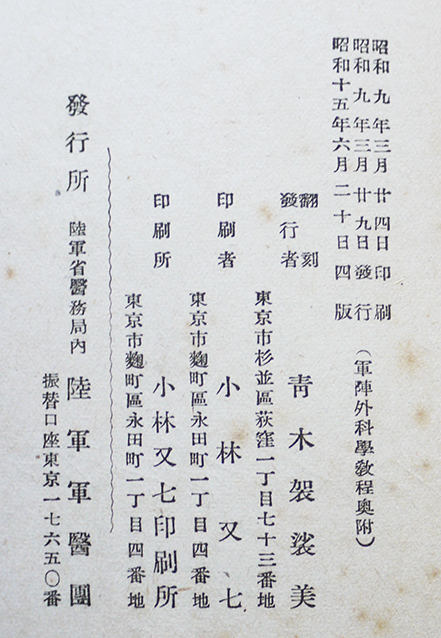 昭和九年三月廿四日印刷
昭和九年三月廿九日發行
昭和十五年六月二十日四版
（軍陣外科學敎程奧附）
翻刻
發行者
東京市杉並區荻窪一丁目七十三番地
靑木袈裟美
印刷者
東京市麴町區永田町一丁目四番地
小林又七
印刷所
東京市麴町區永田町一丁目四番地
小林又七印刷所
發行所
陸軍省醫務局內
陸軍軍醫團
振替口座東京一七六五〇番